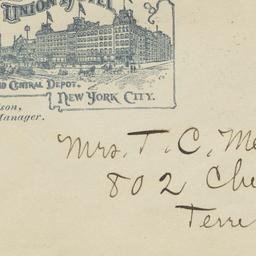 UNION
CENTRAL DEPOT.
NEW YORK CITY.
Manager.
Mrs. T. C. Me
802 Che
Terre